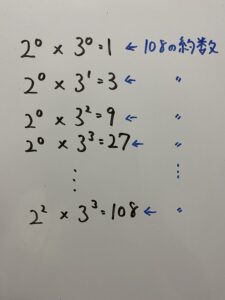 2⁰ × 3⁰ = 1 ← 108の約数
2⁰ × 3¹ = 3 ← 〃
2⁰ × 3² = 9 ← 〃
2⁰ × 3³ = 27 ← 〃
⋮ ⋮
2² × 3³ = 108 ← 〃